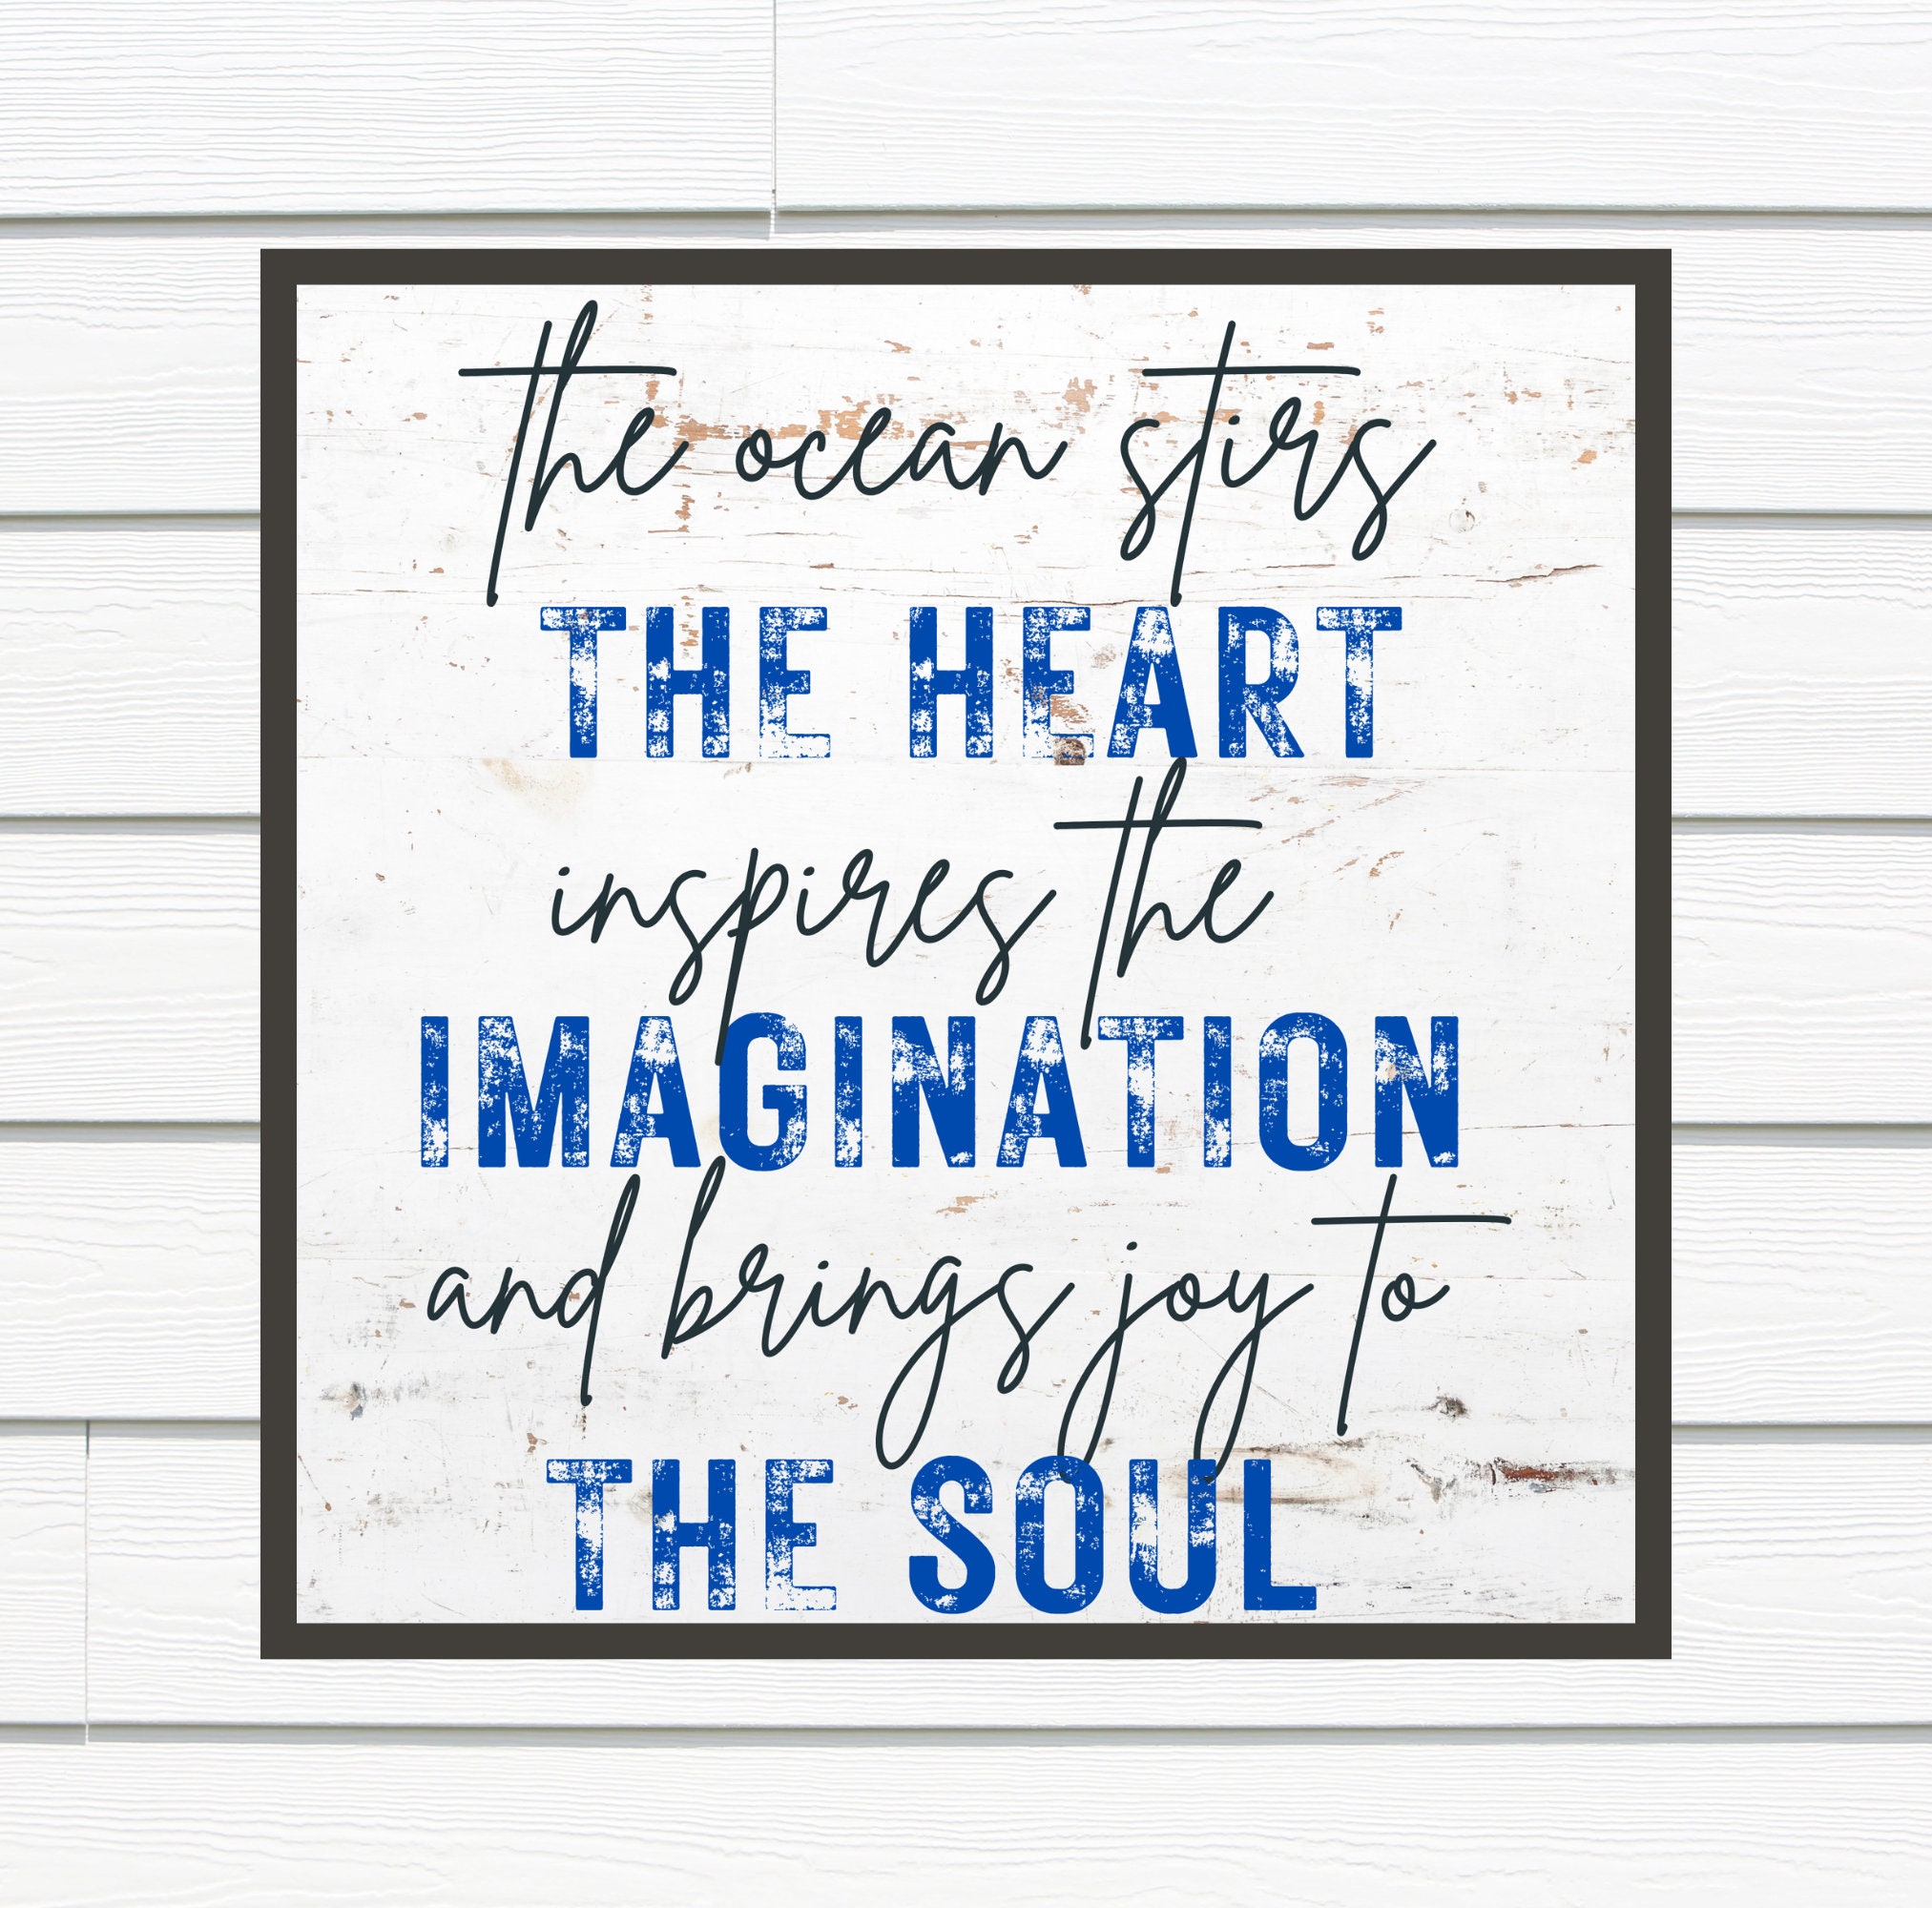 the ocean stirs
THE HEART
inspires the
IMAGINATION
and brings joy to
THE SOUL